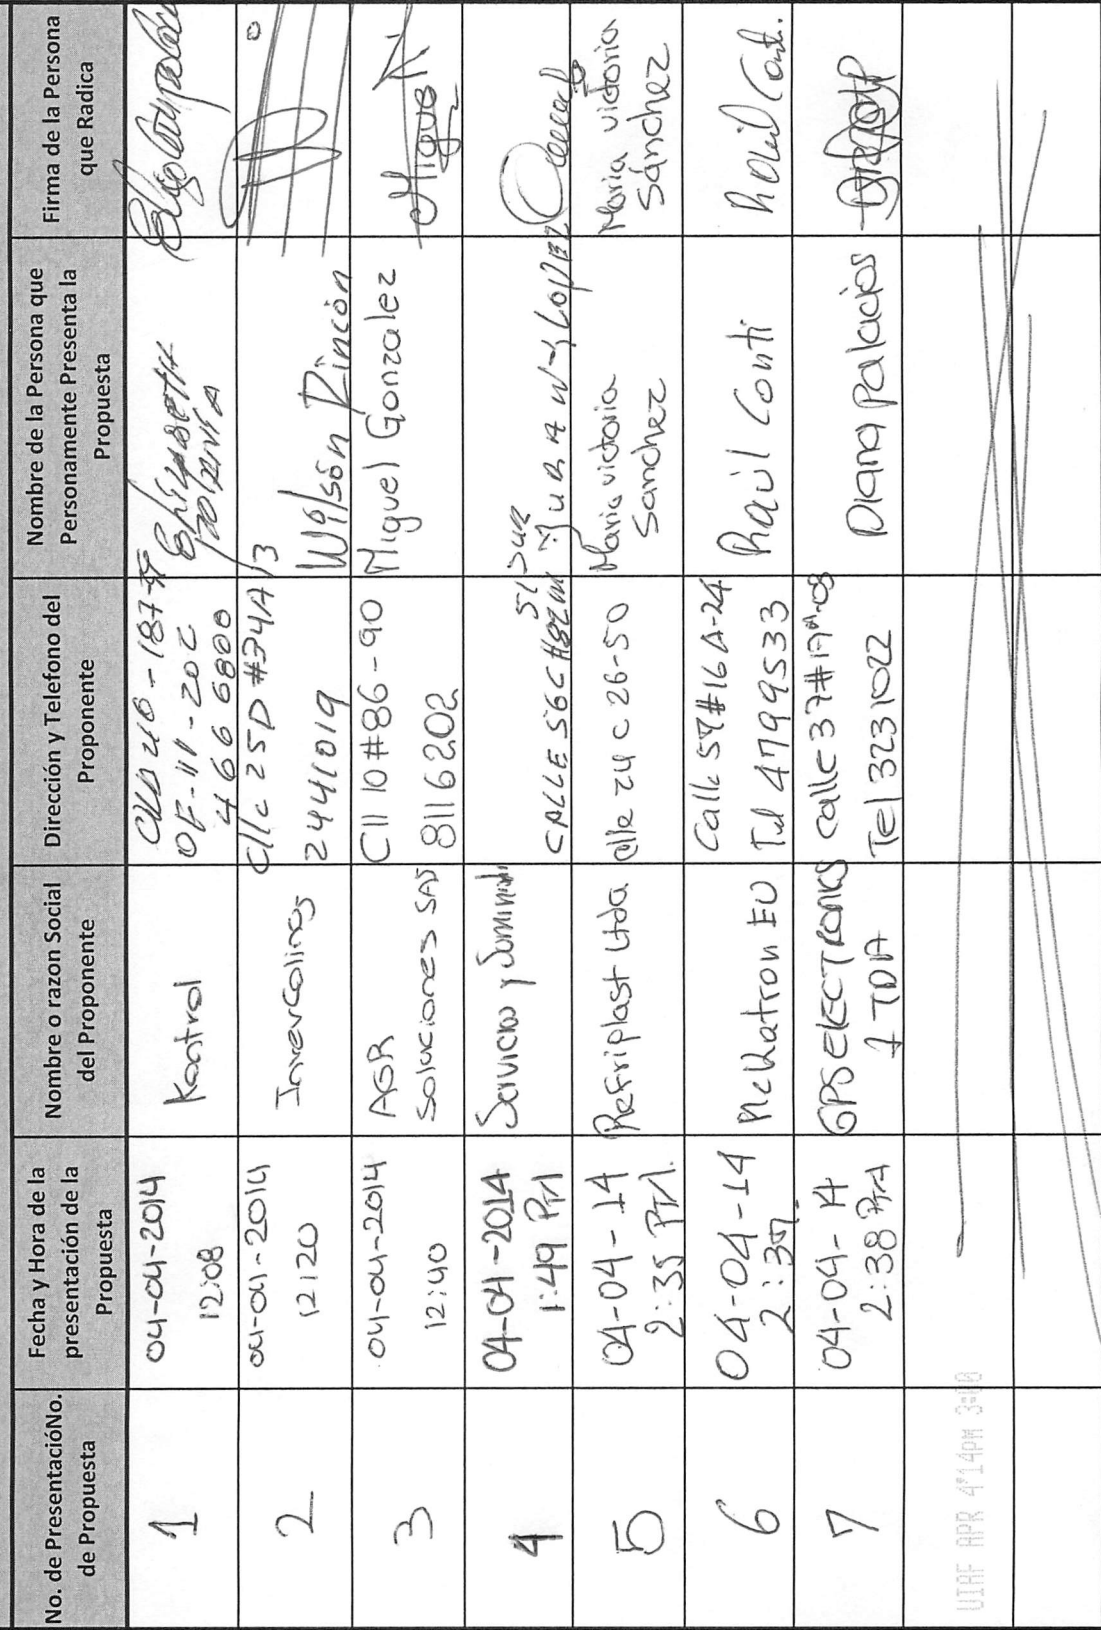 No. de PresentacióNo. de Propuesta
Fecha y Hora de la presentación de la Propuesta
Nombre o razon Social del Proponente
Dirección y Telefono del Proponente
Nombre de la Persona que Personamente Presenta la Propuesta
Firma de la Persona que Radica
1
04-04-2014
12:08
Kontrol
OF-111-20C
466 6800
2
04-04-2014
12:20
InverColinas
Clle 25D #34A/3
2441019
Wilson Rincón
3
04-04-2014
12:40
AGR
Soluciones SAS
Cll 10 #86-90
8116202
Miguel Gonzalez
Miguel
4
04-04-2014
1:49 PM
Servicio y Suministr
CALLE 56C #82W
51 Sur
Juan N. Lopez
5
04-04-14
2:35 PM.
Refriplast Ltda
Calle 24 C 26-50
Maria victoria
Sanchez
Maria victoria
Sánchez
6
04-04-14
2:37
Mekatron EU
Calle 57 #16A-24
Tel 4799533
Raúl Conti
Raúl Cont.
7
04-04-14
2:38 PM
GPS ELECTRONICS
LTDA
calle 37 #17A-08
Tel 3231022
Diana Palacios
UIAF APR 4'14PM 3:00